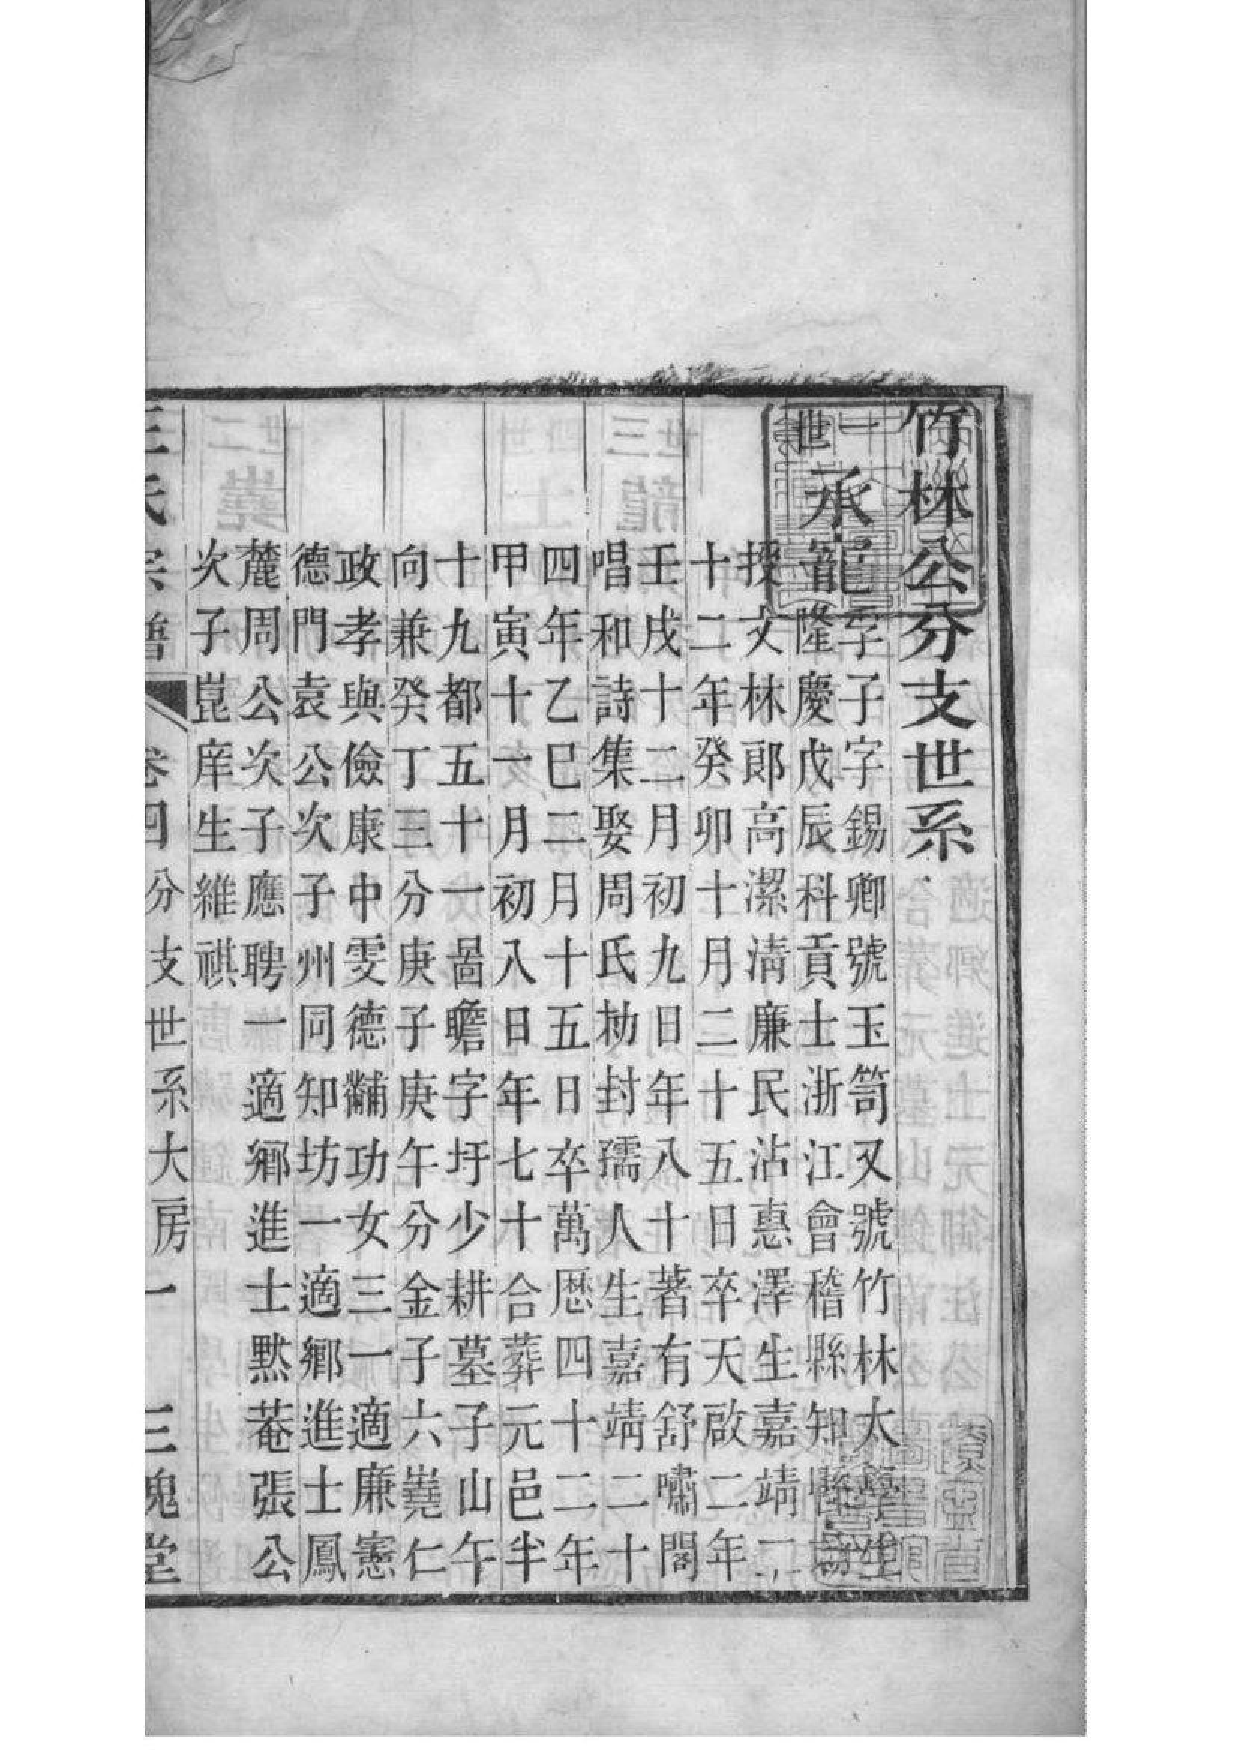 竹林公分支世系
一世
承寵
季子字錫卿號玉笥又號竹林太學生
隆慶戊辰科貢士浙江會稽縣知縣勑
授文林郎高潔淸廉民沾惠澤生嘉靖二
十二年癸卯十一月二十五日卒天啟二年
壬戌十二月初九日年八十著有舒嘯閣
唱和詩集娶周氏勑封孺人生嘉靖二十
四年乙巳二月十五日卒萬歷四十二年
甲寅十一月初八日年七十合葬元邑半
十九都五十一啚瞻字圩少耕墓子山午
向兼癸丁三分庚子庚午分金子六嶤仁
政孝與儉康中雯德黼功女三一適廉憲
德門袁公次子州同知坊一適鄉進士鳳
麓周公次子應聘一適鄉進士黙菴張公
次子崑庠生維祺
王氏宗譜 卷四 分支世系大房 一 三槐堂